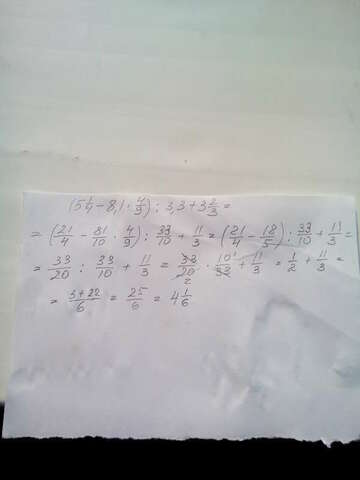 (5 1/4 - 8,1 · 4/9) : 3,3 + 3 2/3 =
= (21/4 - 81/10 · 4/9) : 33/10 + 11/3 = (21/4 - 18/5) : 33/10 + 11/3 =
= 33/20 : 33/10 + 11/3 = 33/20 2 · 10 1/33 + 11/3 = 1/2 + 11/3 =
= 3+22/6 = 25/6 = 4 1/6